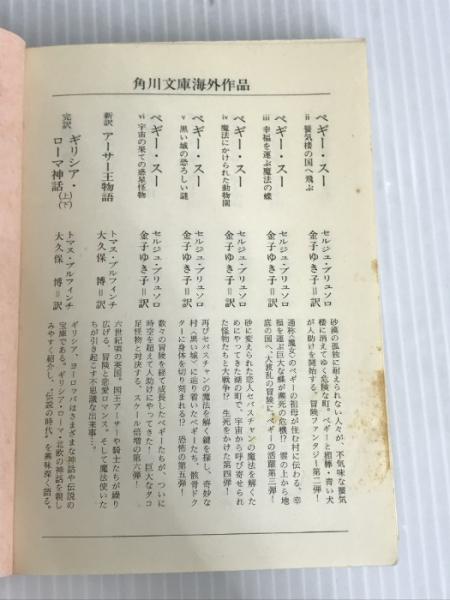 角川文庫海外作品
ペギー・スー
ii 蜃気楼の国へ飛ぶ
セルジュ・ブリュソロ
金子ゆき子＝訳
砂漠の孤独に耐えられない人々が、不気味な蜃気
楼に消えてゆく危険な町。ペギーと相棒・青い犬
が人助けを開始する、冒険ファンタジー第二弾！
ペギー・スー
iii 幸福を運ぶ魔法の蝶
セルジュ・ブリュソロ
金子ゆき子＝訳
通称〈魔女〉のペギーの祖母が住む村に伝わる、幸
福を運ぶ巨大な蝶が瀕死の危機!? 雲の上から地
底の国へ、大波乱の冒険に、ペギーの活躍第三弾！
ペギー・スー
iv 魔法にかけられた動物園
セルジュ・ブリュソロ
金子ゆき子＝訳
砂に変えられた恋人セバスチャンの魔法を解くた
めにやってきた湖の町で、宇宙から呼び寄せられ
た怪物たちと大戦争!? 生死をかけた第四弾！
ペギー・スー
v 黒い城の恐ろしい謎
セルジュ・ブリュソロ
金子ゆき子＝訳
再びセバスチャンの魔法を解く鍵を探し、奇妙な
村〈黒い城〉に辿り着いたペギーたち。骸骨ドク
ターに身体を切り刻まれる!? 恐怖の第五弾！
ペギー・スー
vi 宇宙の果ての惑星怪物
セルジュ・ブリュソロ
金子ゆき子＝訳
数々の冒険を経て成長したペギーたちが、ついに
時空を超えて人助けにやってきた！ 巨大なタコ
足怪物と対決する、スケール倍増の第六弾！
新訳 アーサー王物語
トマス・ブルフィンチ
大久保 博＝訳
六世紀頃の英国。国王アーサーや騎士たちが繰り
広げる、冒険と恋愛ロマンス。そして魔法使いた
ちが引き起こす不思議な出来事…。
完訳 ギリシア・
ローマ神話(上)(下)
トマス・ブルフィンチ
大久保 博＝訳
ギリシア、ヨーロッパはさまざまな神話や伝説の
宝庫である。ギリシア・ローマ・北欧の神話を親し
みやすく紹介し、〝伝説の時代〟を興味深く語る。